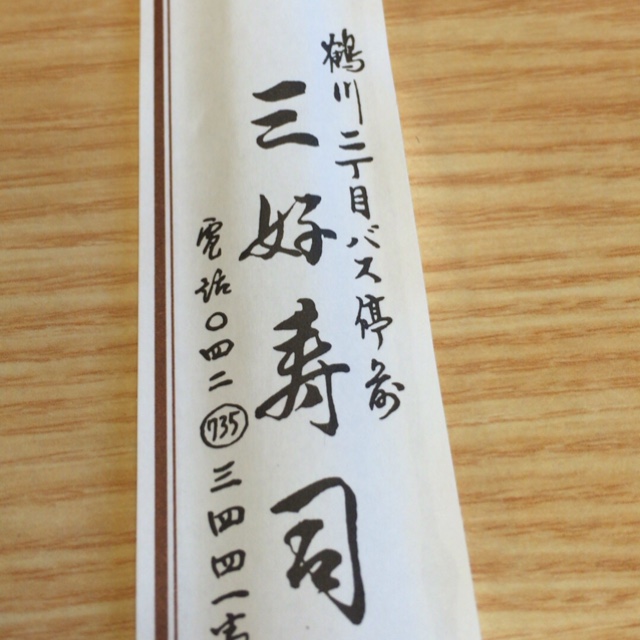 鶴川二丁目バス停前
三好寿司
電話〇四二(735)三四四一番